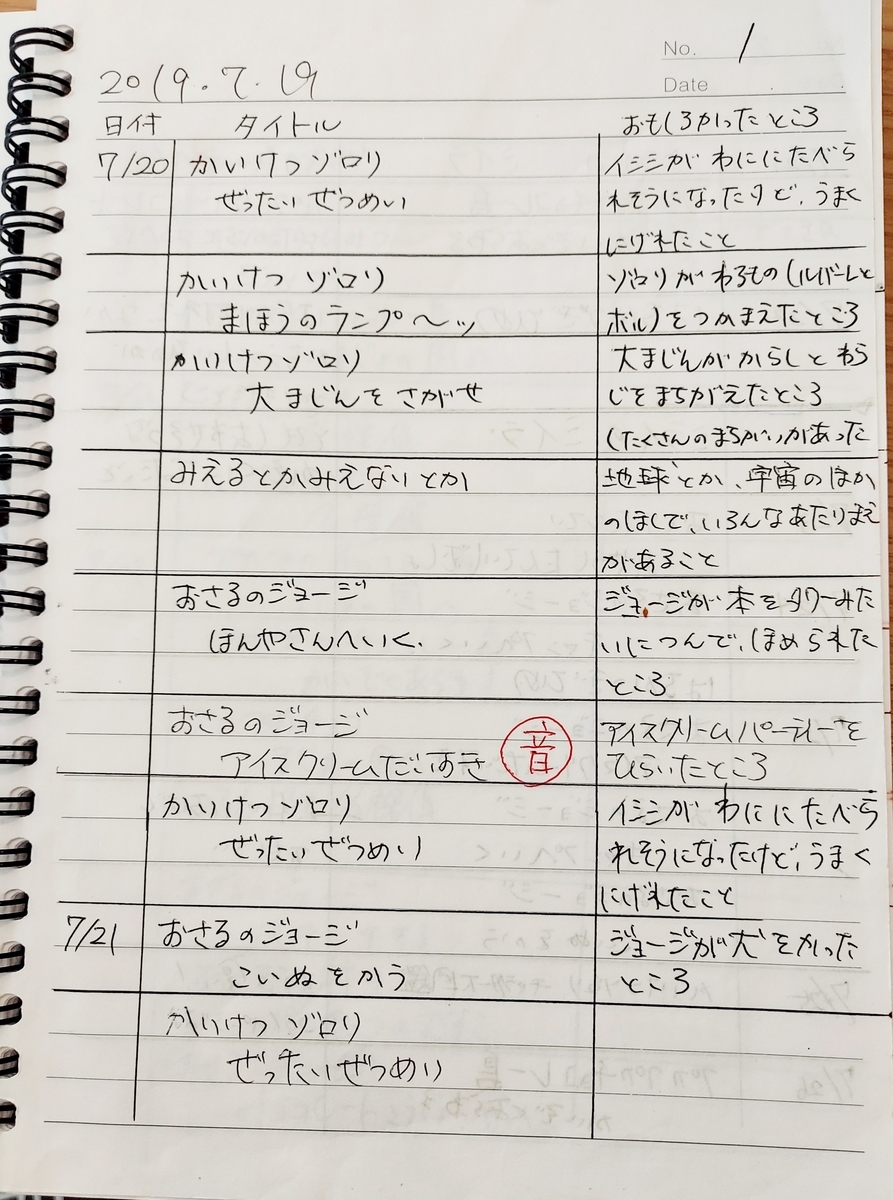 No. 1
2019.7.19
Date
日付 タイトル おもしろかったところ
7/20 かいけつ ゾロリ
ぜったい ぜつめい
イシシが わににたべら
れそうになったけど、うまく
にげれたこと
かいけつ ゾロリ
まほうのランプ〜ッ
ゾロリが わるもの(ルバートと
ボル)をつかまえたところ
かいけつ ゾロリ
大まじんを さがせ
大まじんが からしと わら
じを まちがえたところ
(たくさんのまちがいがあった
みえるとかみえないとか
地球とか、宇宙のほか
のほしで、いろんなあたりまえ
があること
おさるのジョージ
ほんやさんへいく.
ジョージが 本をタワーみた
いにつんで、ほめられた
ところ
おさるのジョージ
アイスクリームだいすき
音
アイスクリームパーティーを
ひらいたところ
かいけつ ゾロリ
ぜったいぜつめい
イシシが わににたべら
れそうになったけど、うまく
にげれたこと
7/21 おさるのジョージ
こいぬをかう
ジョージが犬をかった
ところ
かいけつ ゾロリ
ぜったいぜつめい